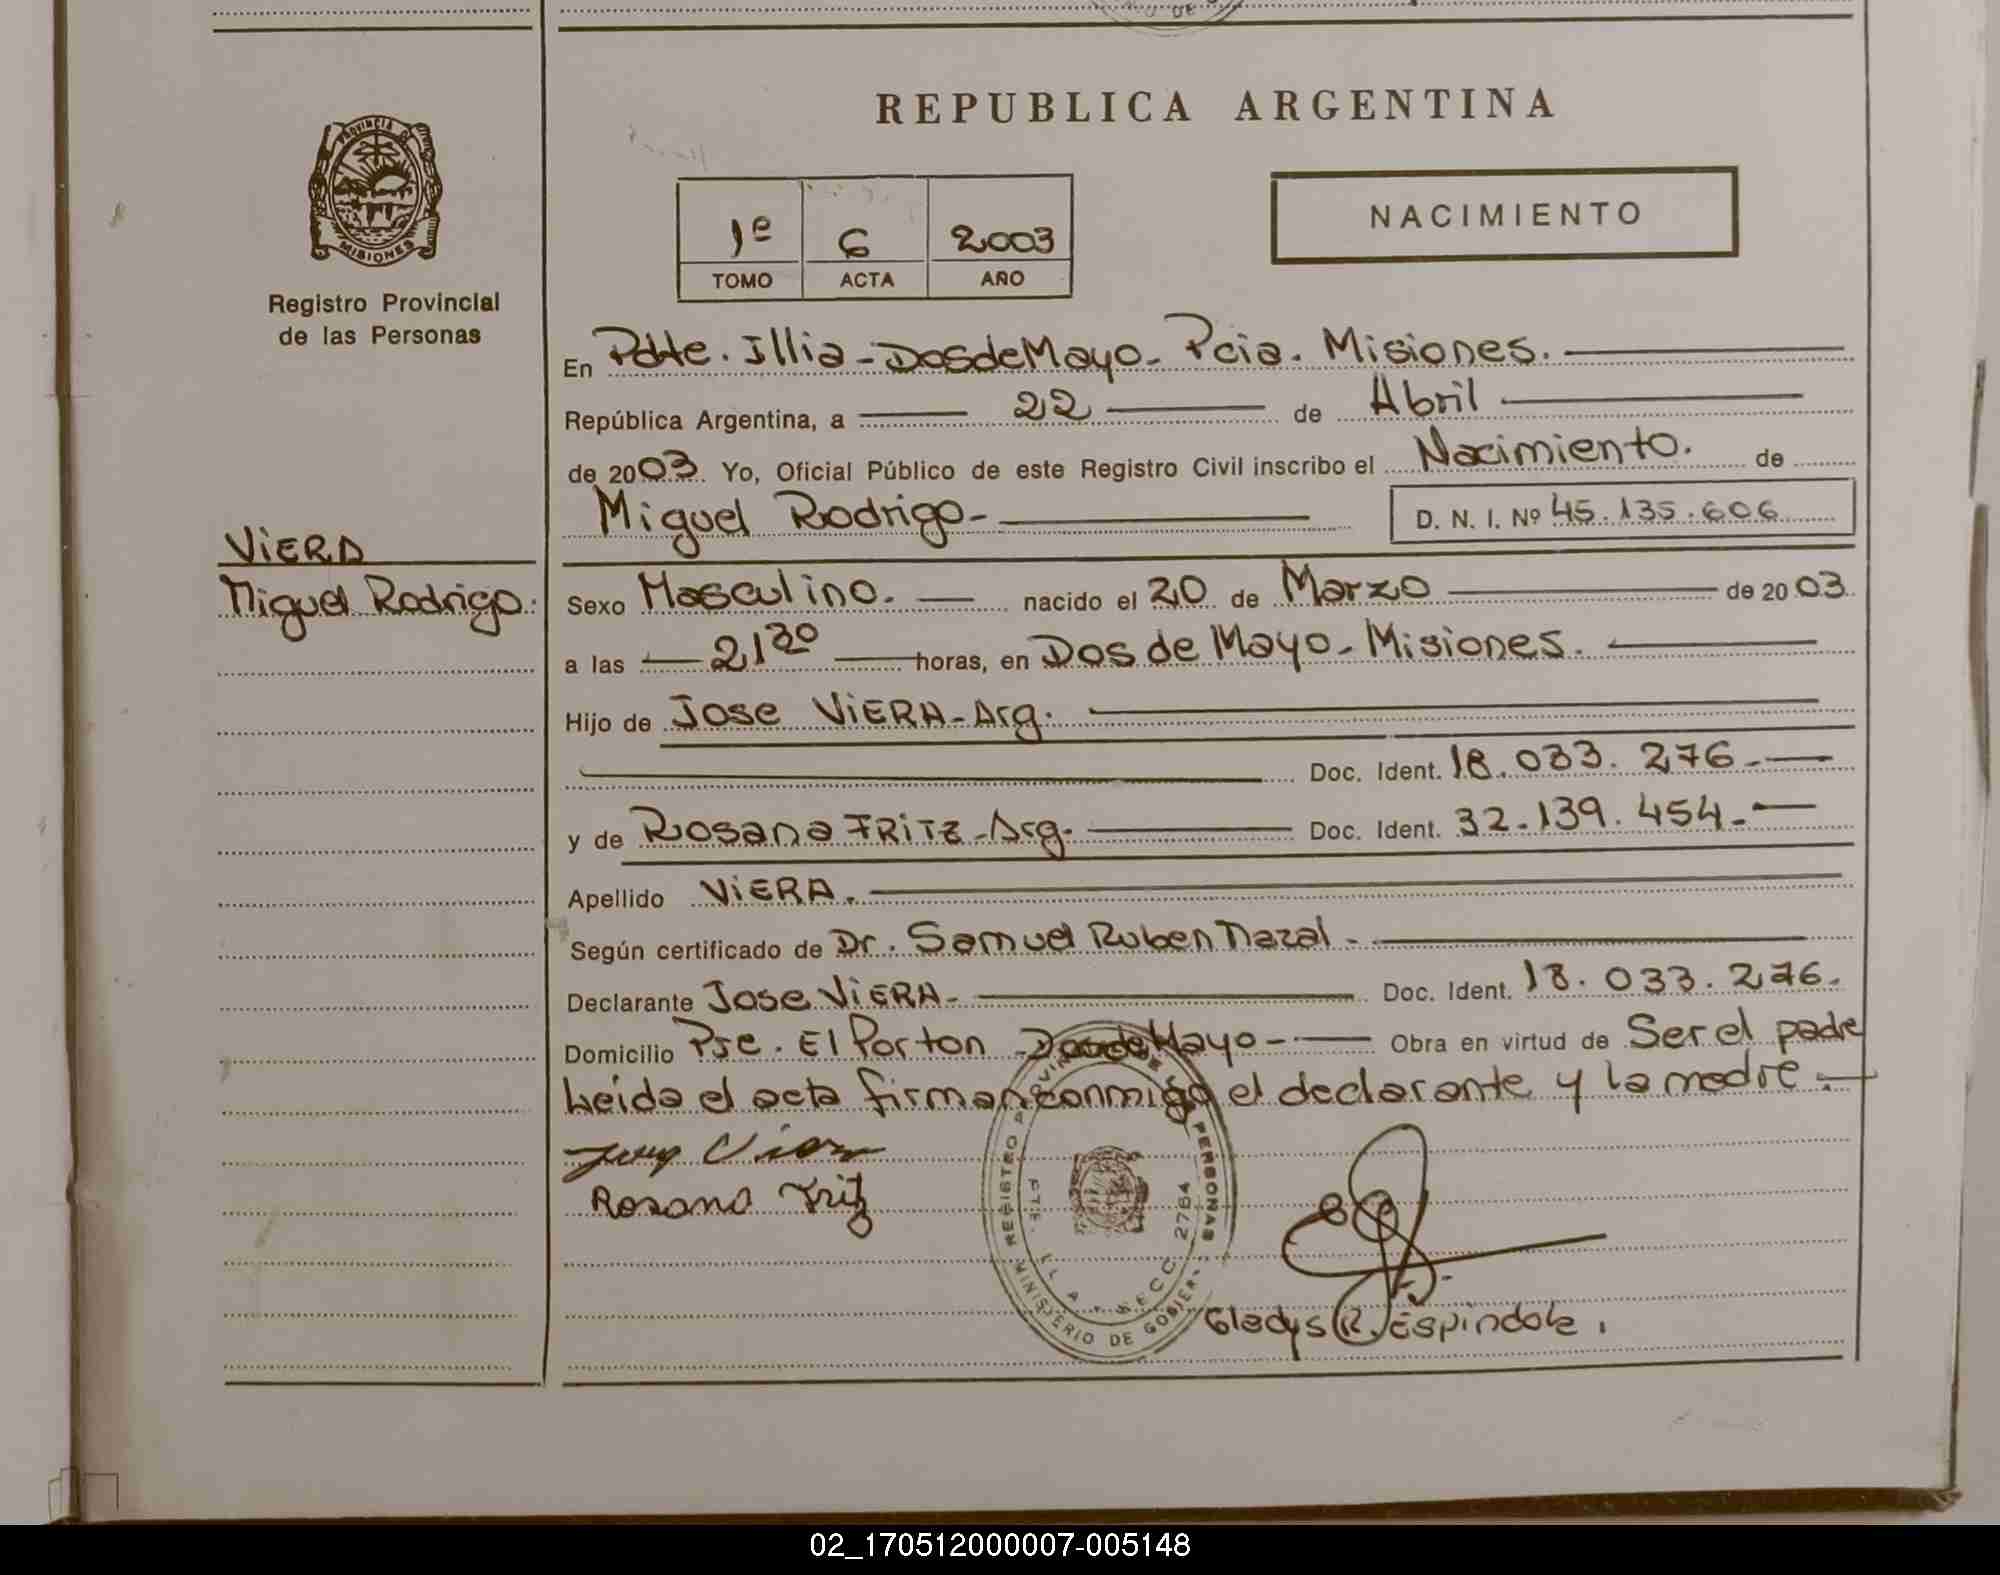 REPUBLICA ARGENTINA
PROVINCIA DE
MISIONES
Registro Provincial
de las Personas
1º 6 2003
TOMO ACTA AÑO
NACIMIENTO
En Pdte. Illia - Dos de Mayo - Pcia. Misiones.
República Argentina, a 22 de Abril
de 2003. Yo, Oficial Público de este Registro Civil inscribo el Nacimiento. de
Miguel Rodrigo - D. N. I. Nº 45.135.606
VIERA
Miguel Rodrigo.
Sexo Masculino. nacido el 20 de Marzo de 2003.
a las 21 30 horas, en Dos de Mayo - Misiones.
Hijo de Jose VIERA - Arg.
Doc. Ident. 18.033.276.-
y de Rosana FRITZ - Arg. Doc. Ident. 32.139.454.-
Apellido VIERA.
Según certificado de Dr. Samuel Ruben Nazal -
Declarante Jose VIERA - Doc. Ident. 18.033.276.
Domicilio Pje. El Porton Dos de Mayo - Obra en virtud de Ser el padre
Leida el acta firman conmigo el declarante y la madre.-
Rosana Fritz
REGISTRO PERSONAS
SECC. 2784
MINISTERIO DE GOBIER
Gladys R. Espindola.
02_170512000007-005148